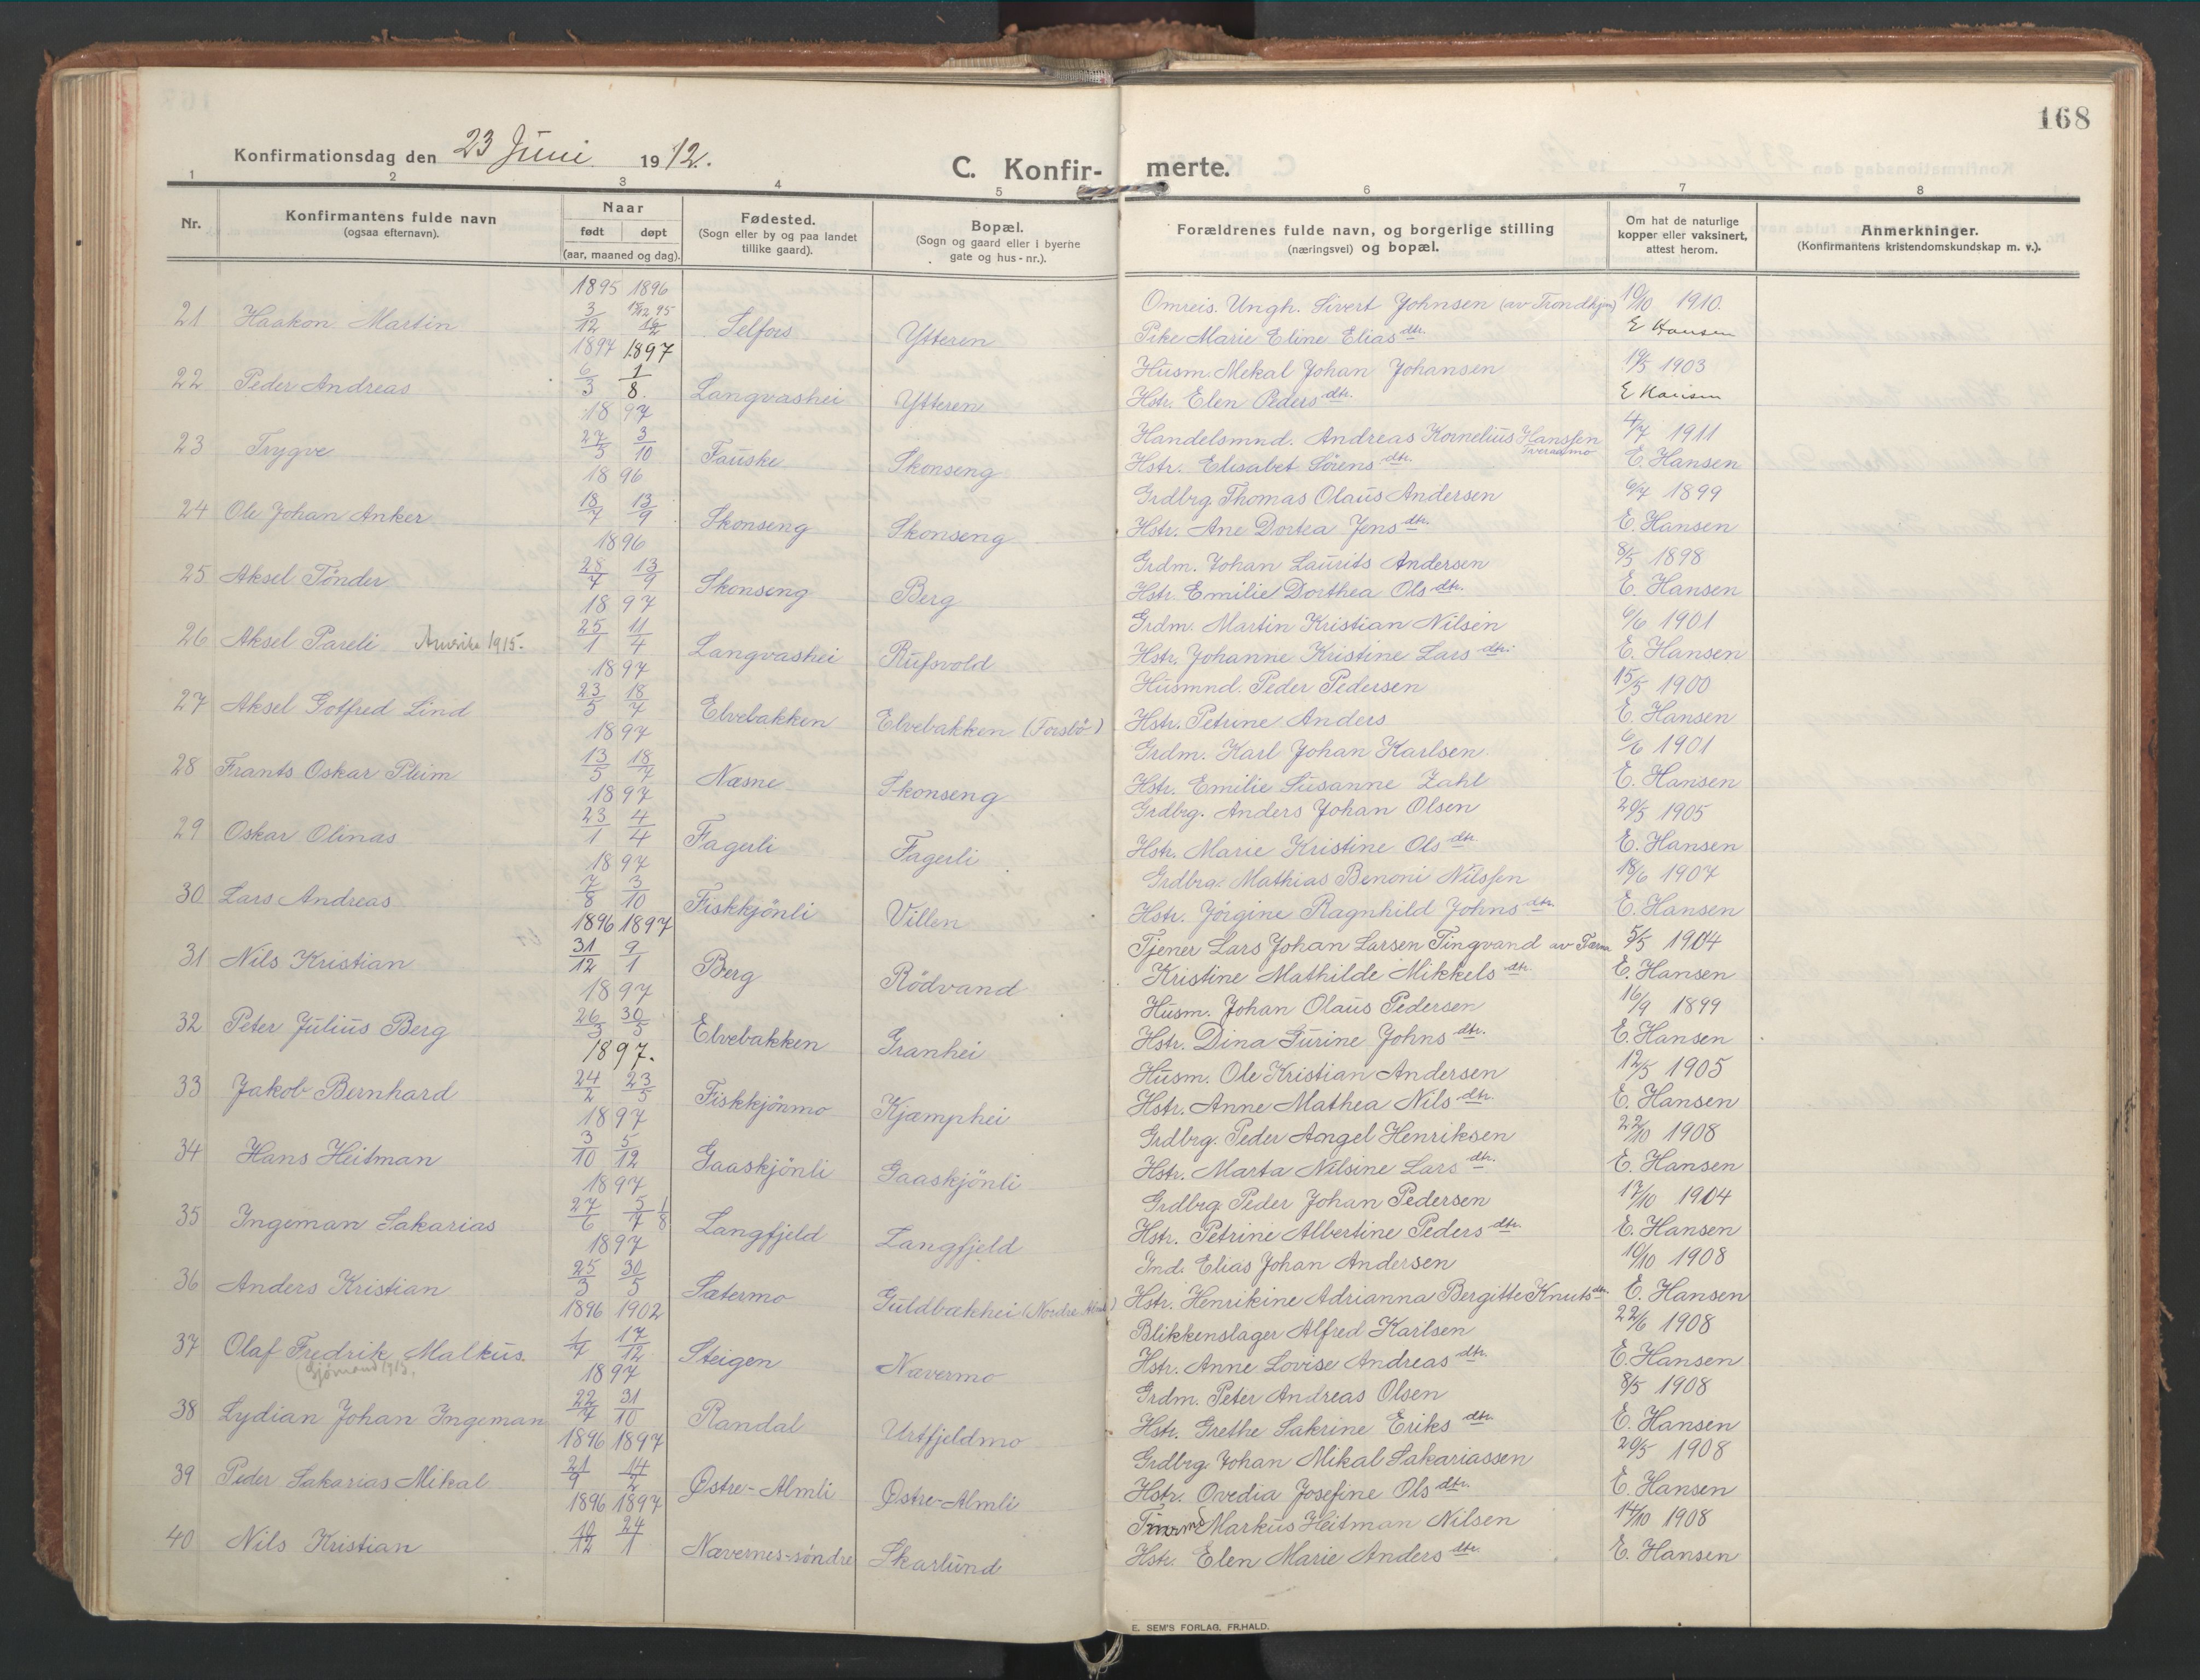 168
Konfirmationsdag den 23 Juni 1912.
C. Konfir- merte.
1 2 3 4 5 6 7 8
Nr.
Konfirmantens fulde navn
(ogsaa efternavn).
Naar
født døpt
(aar, maaned og dag).
Fødested.
(Sogn eller by og paa landet
tillike gaard).
Bopæl.
(Sogn og gaard eller i byerne
gate og hus-nr.).
Forældrenes fulde navn, og borgerlige stilling
(næringsvei) og bopæl.
Om hat de naturlige
kopper eller vaksinert,
attest herom.
Anmerkninger.
(Konfirmantens kristendomskundskap m. v.).
1895 1896
21 Haakon Martin 3/12 Selfors Ytteren
Omreis. Ungk. Sivert Johnsen (av Trondhjem) 10/10 1910.
Pike Marie Eline Elias dtr. E Hansen
1897 1897
22 Peder Andreas 6/3 1/8. Langvashei Ytteren
Husm. Mekal Johan Johansen 19/5 1903
Hstr. Elen Peders dtr. E Hansen
1897
23 Trygve 27/5 3/10 Fauske Skonseng
Handelsmnd. Andreas Kornelius Hanssen Tveraamo 4/7 1911
Hstr. Elisabet Sørens dtr. E. Hansen
1896
24 Ole Johan Anker 18/7 13/9 Skonseng Skonseng
Grdbrg Thomas Olaus Andersen 6/7 1899
Hstr. Ane Dortea Jens dtr. E. Hansen
1896
25 Aksel Tønder 28/7 13/9 Skonseng Berg
Grdm. Johan Laurits Andersen 8/5 1898
Hstr. Emilie Dorthea Ols dtr. E. Hansen
1897
26 Aksel Pareli Amerika 1915. 25/1 11/4 Langvashei Rufsvold
Grdm. Martin Kristian Nilsen 6/6 1901
Hstr. Johanne Kristine Lars dtr. E. Hansen
1897
27 Aksel Gotfred Lind 23/5 18/7 Elvebakken Elvebakken (Forslø)
Husmnd. Peder Pedersen 15/5 1900
Hstr. Petrine Anders E. Hansen
1897
28 Frants Oskar Pleim 13/5 18/7 Næsne Skonseng
Grdm. Karl Johan Karlsen 6/6 1901
Hstr. Emilie Susanne Zahl E. Hansen
1897
29 Oskar Olinas 23/1 4/4 Fagerli Fagerli
Grdbrg. Anders Johan Olsen 20/5 1905
Hstr. Marie Kristine Ols dtr. E. Hansen
1897
30 Lars Andreas 7/8 3/10 Fiskkjønli Villen
Grdbrg. Mathias Benoni Nilssen 18/6 1907
Hstr. Jørgine Ragnhild Johns dtr. E. Hansen
1896 1897
31 Nils Kristian 31/12 9/1 Berg Rødvand
Tjener Lars Johan Larsen Tingvand av Tærna 5/5 1904
Kristine Mathilde Mikkels dtr. E. Hansen
1897
32 Peter Julius Berg 26/3 30/5 Elvebakken Granhei
Husm. Johan Olaus Pedersen 16/9 1899
Hstr. Dina Turine Johns dtr. E. Hansen
1897.
33 Jakob Bernhard 24/2 23/5 Fiskkjønmo Kjamphei
Husm. Ole Kristian Andersen 12/5 1905
Hstr. Anne Mathea Nils dtr. E. Hansen
1897
34 Hans Heitman 3/10 5/12 Gaaskjønli Gaaskjønli
Grdbrg. Peder Angel Henriksen 22/10 1908
Hstr. Marta Nilsine Lars dtr. E. Hansen
1897
35 Ingeman Sakarias 27/6 5/7 1/8 Langfjeld Langfjeld
Grdbrg Peder Johan Pedersen 17/10 1904
Hstr. Petrine Albertine Peders dtr. E. Hansen
1897
36 Anders Kristian 25/3 30/5 Sætermo Guldbakhei (Nordre
Ind. Elias Johan Andersen 10/10 1908
Hstr. Henrikine Adrianna Bergitte Knuts dtr. E. Hansen
1896 1902
37 Olaf Fredrik Malkus. 1/7 17/12 Steigen Nævermo
(Sjømand 1915.
Blikkenslager Alfred Karlsen 22/6 1908
Hstr. Anne Lovise Andreas dtr. E. Hansen
1897
38 Lydian Johan Ingeman 22/7 31/10 Randal Urtfjeldmo
Grdm. Peter Andreas Olsen 8/5 1908
Hstr. Grethe Sakrine Eriks dtr. E. Hansen
1896 1897
39 Peder Sakarias Mikal 21/9 14/2 Østre-Almli Østre-Almli
Grdbrg. Johan Mikal Sakariassen 20/5 1908
Hstr. Ovedia Josefine Ols dtr. E. Hansen
1896 1897
40 Nils Kristian 10/12 24/1 Nævernes-søndre Skarlund
Markus Heitman Nilsen 14/10 1908
Hstr. Elen Marie Anders dtr. E. Hansen
E. SEM'S FORLAG, FR.HALD.